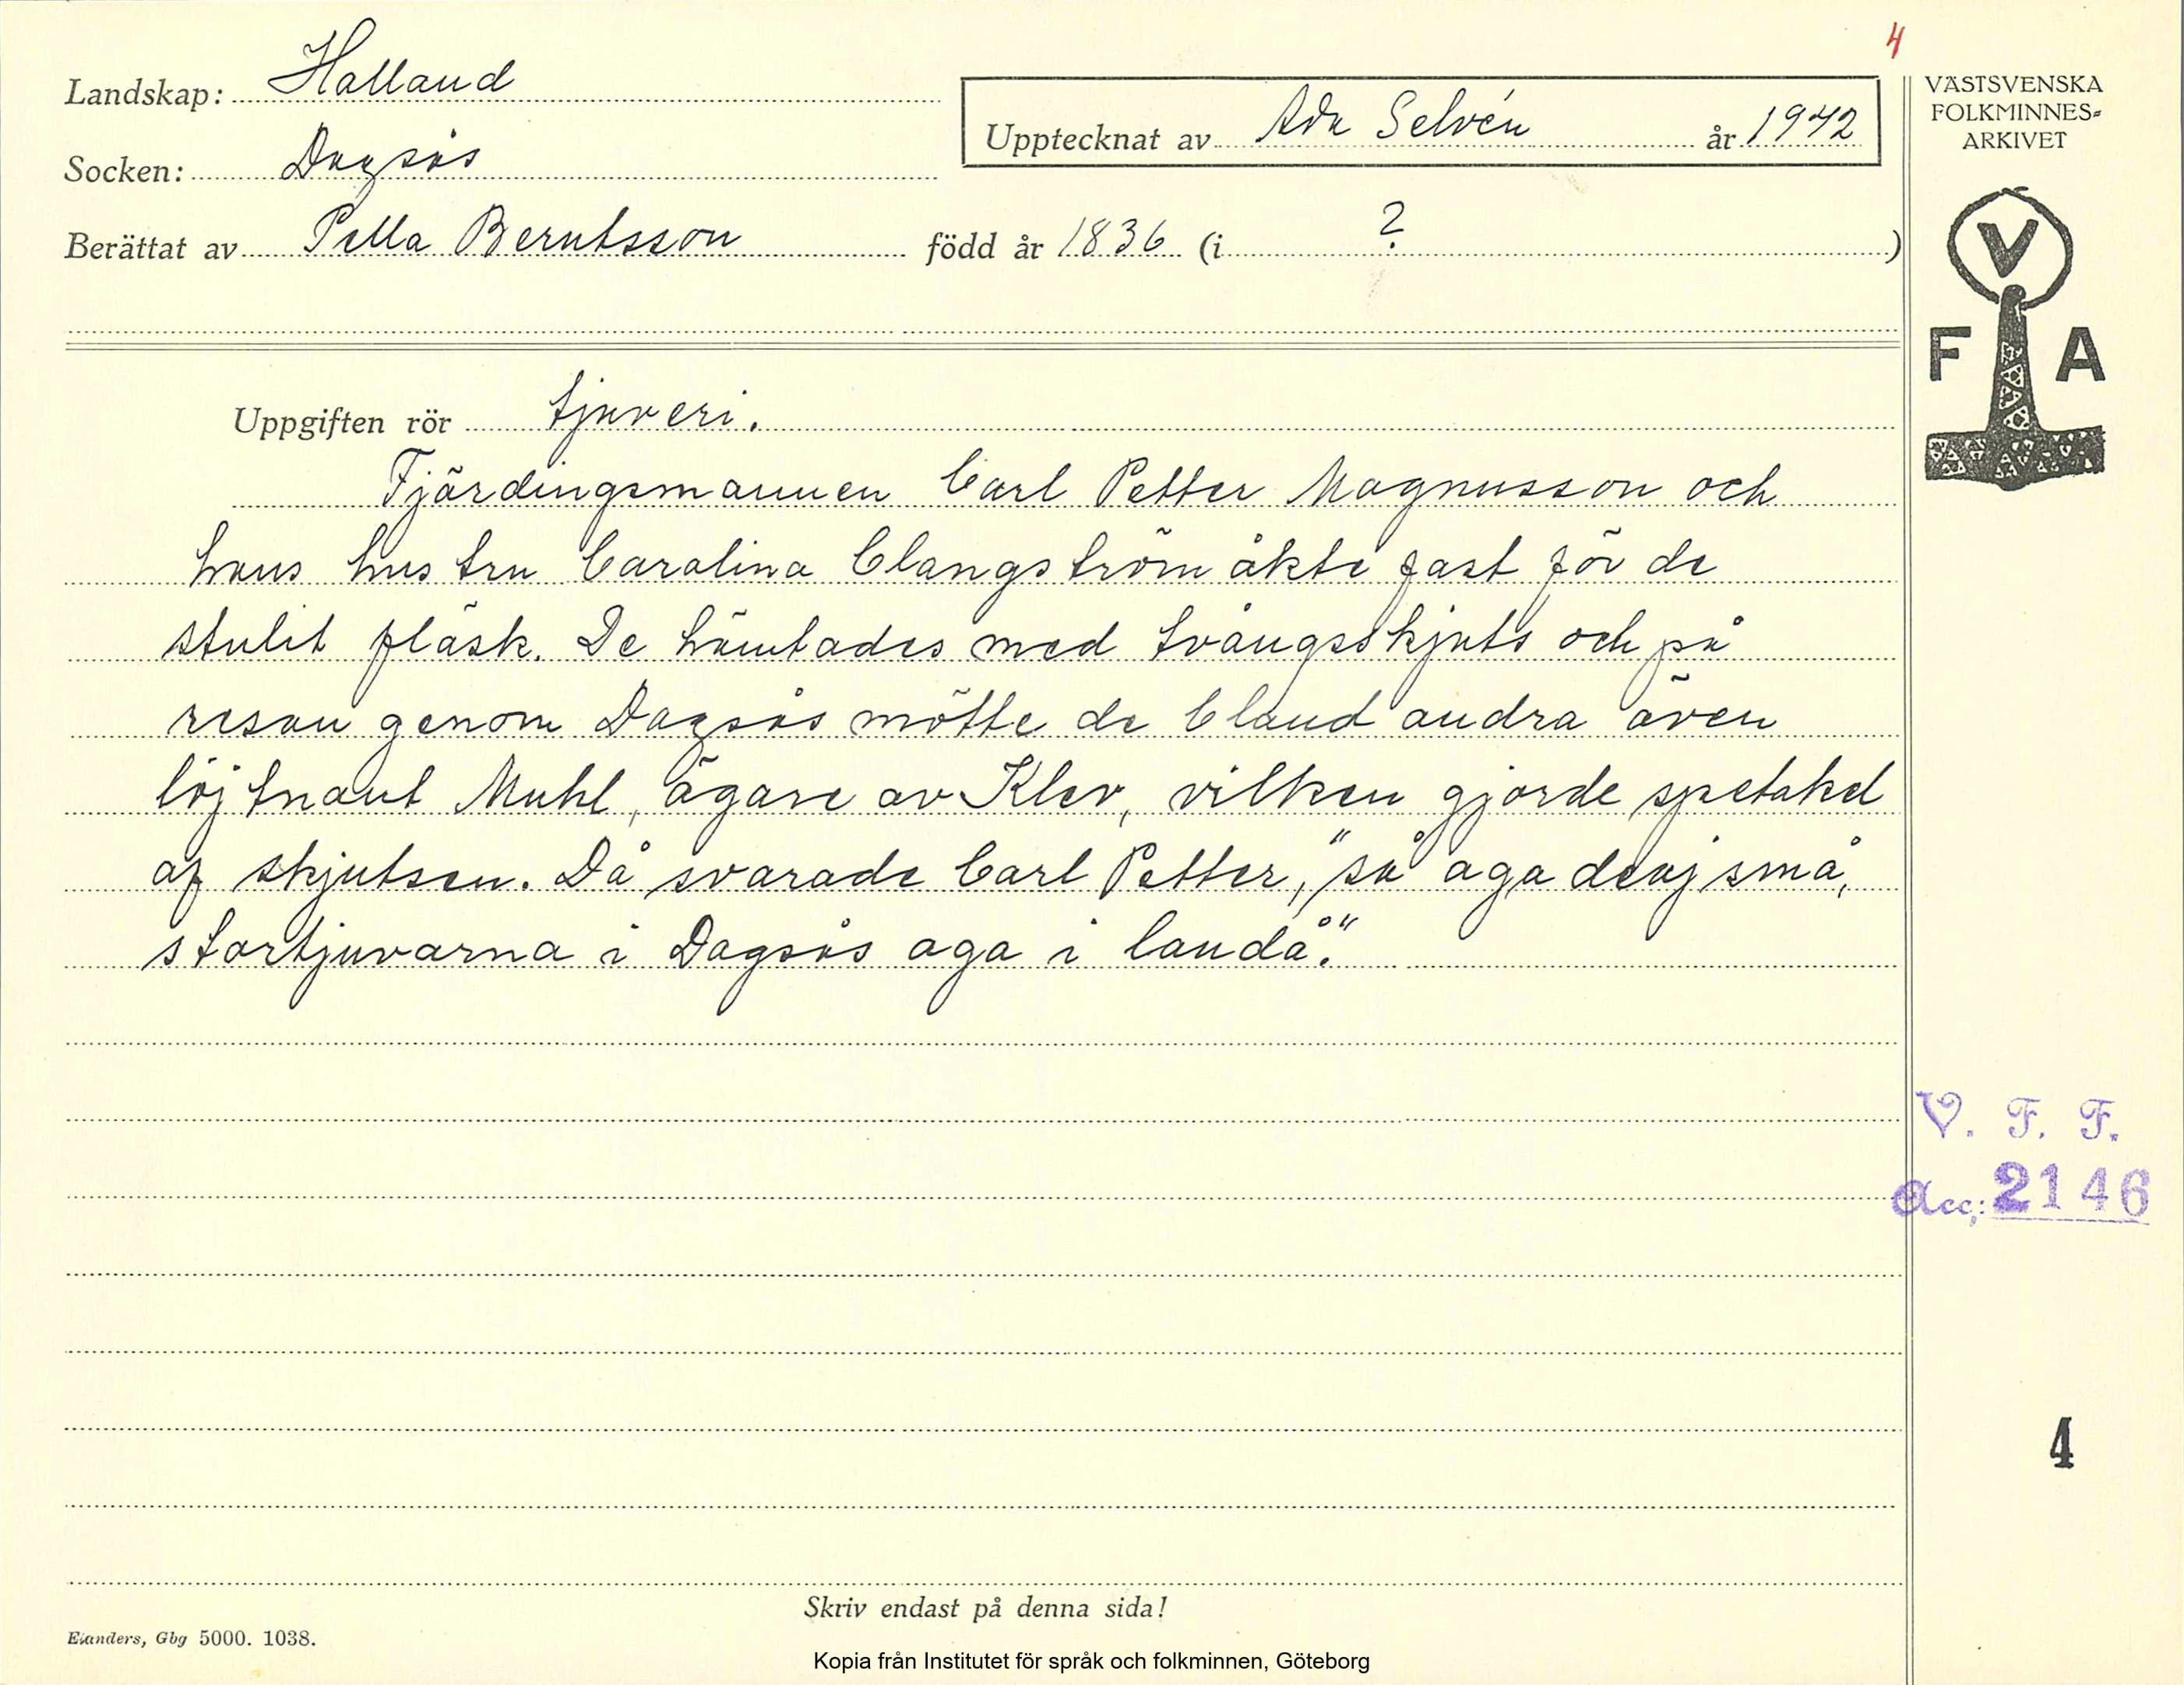 4
Landskap: Halland
Upptecknat av Ada Selvén år 1942
VÄSTSVENSKA
FOLKMINNES=
ARKIVET
Socken: Dagsås
Berättat av Pella Berntsson född år 1836 (i ? )
V
F A
Uppgiften rör tjuveri.
Fjärdingsmannen Carl Petter Magnusson och
hans hustru Carolina Clangström åkte fast för de
stulit fläsk. De hämtades med tvångsskjuts och på
resan genom Dagsås mötte de bland andra även
löjtnant Muhl, ägare av Klev, vilken gjorde spetakel
af skjutsen. Då svarade Carl Petter, "så aga små,
stortjuvarna i Dagsås aga i landå."
V. F. F.
Acc: 2146
4
Skriv endast på denna sida!
Elanders, Gbg 5000. 1038.
Kopia från Institutet för språk och folkminnen, Göteborg